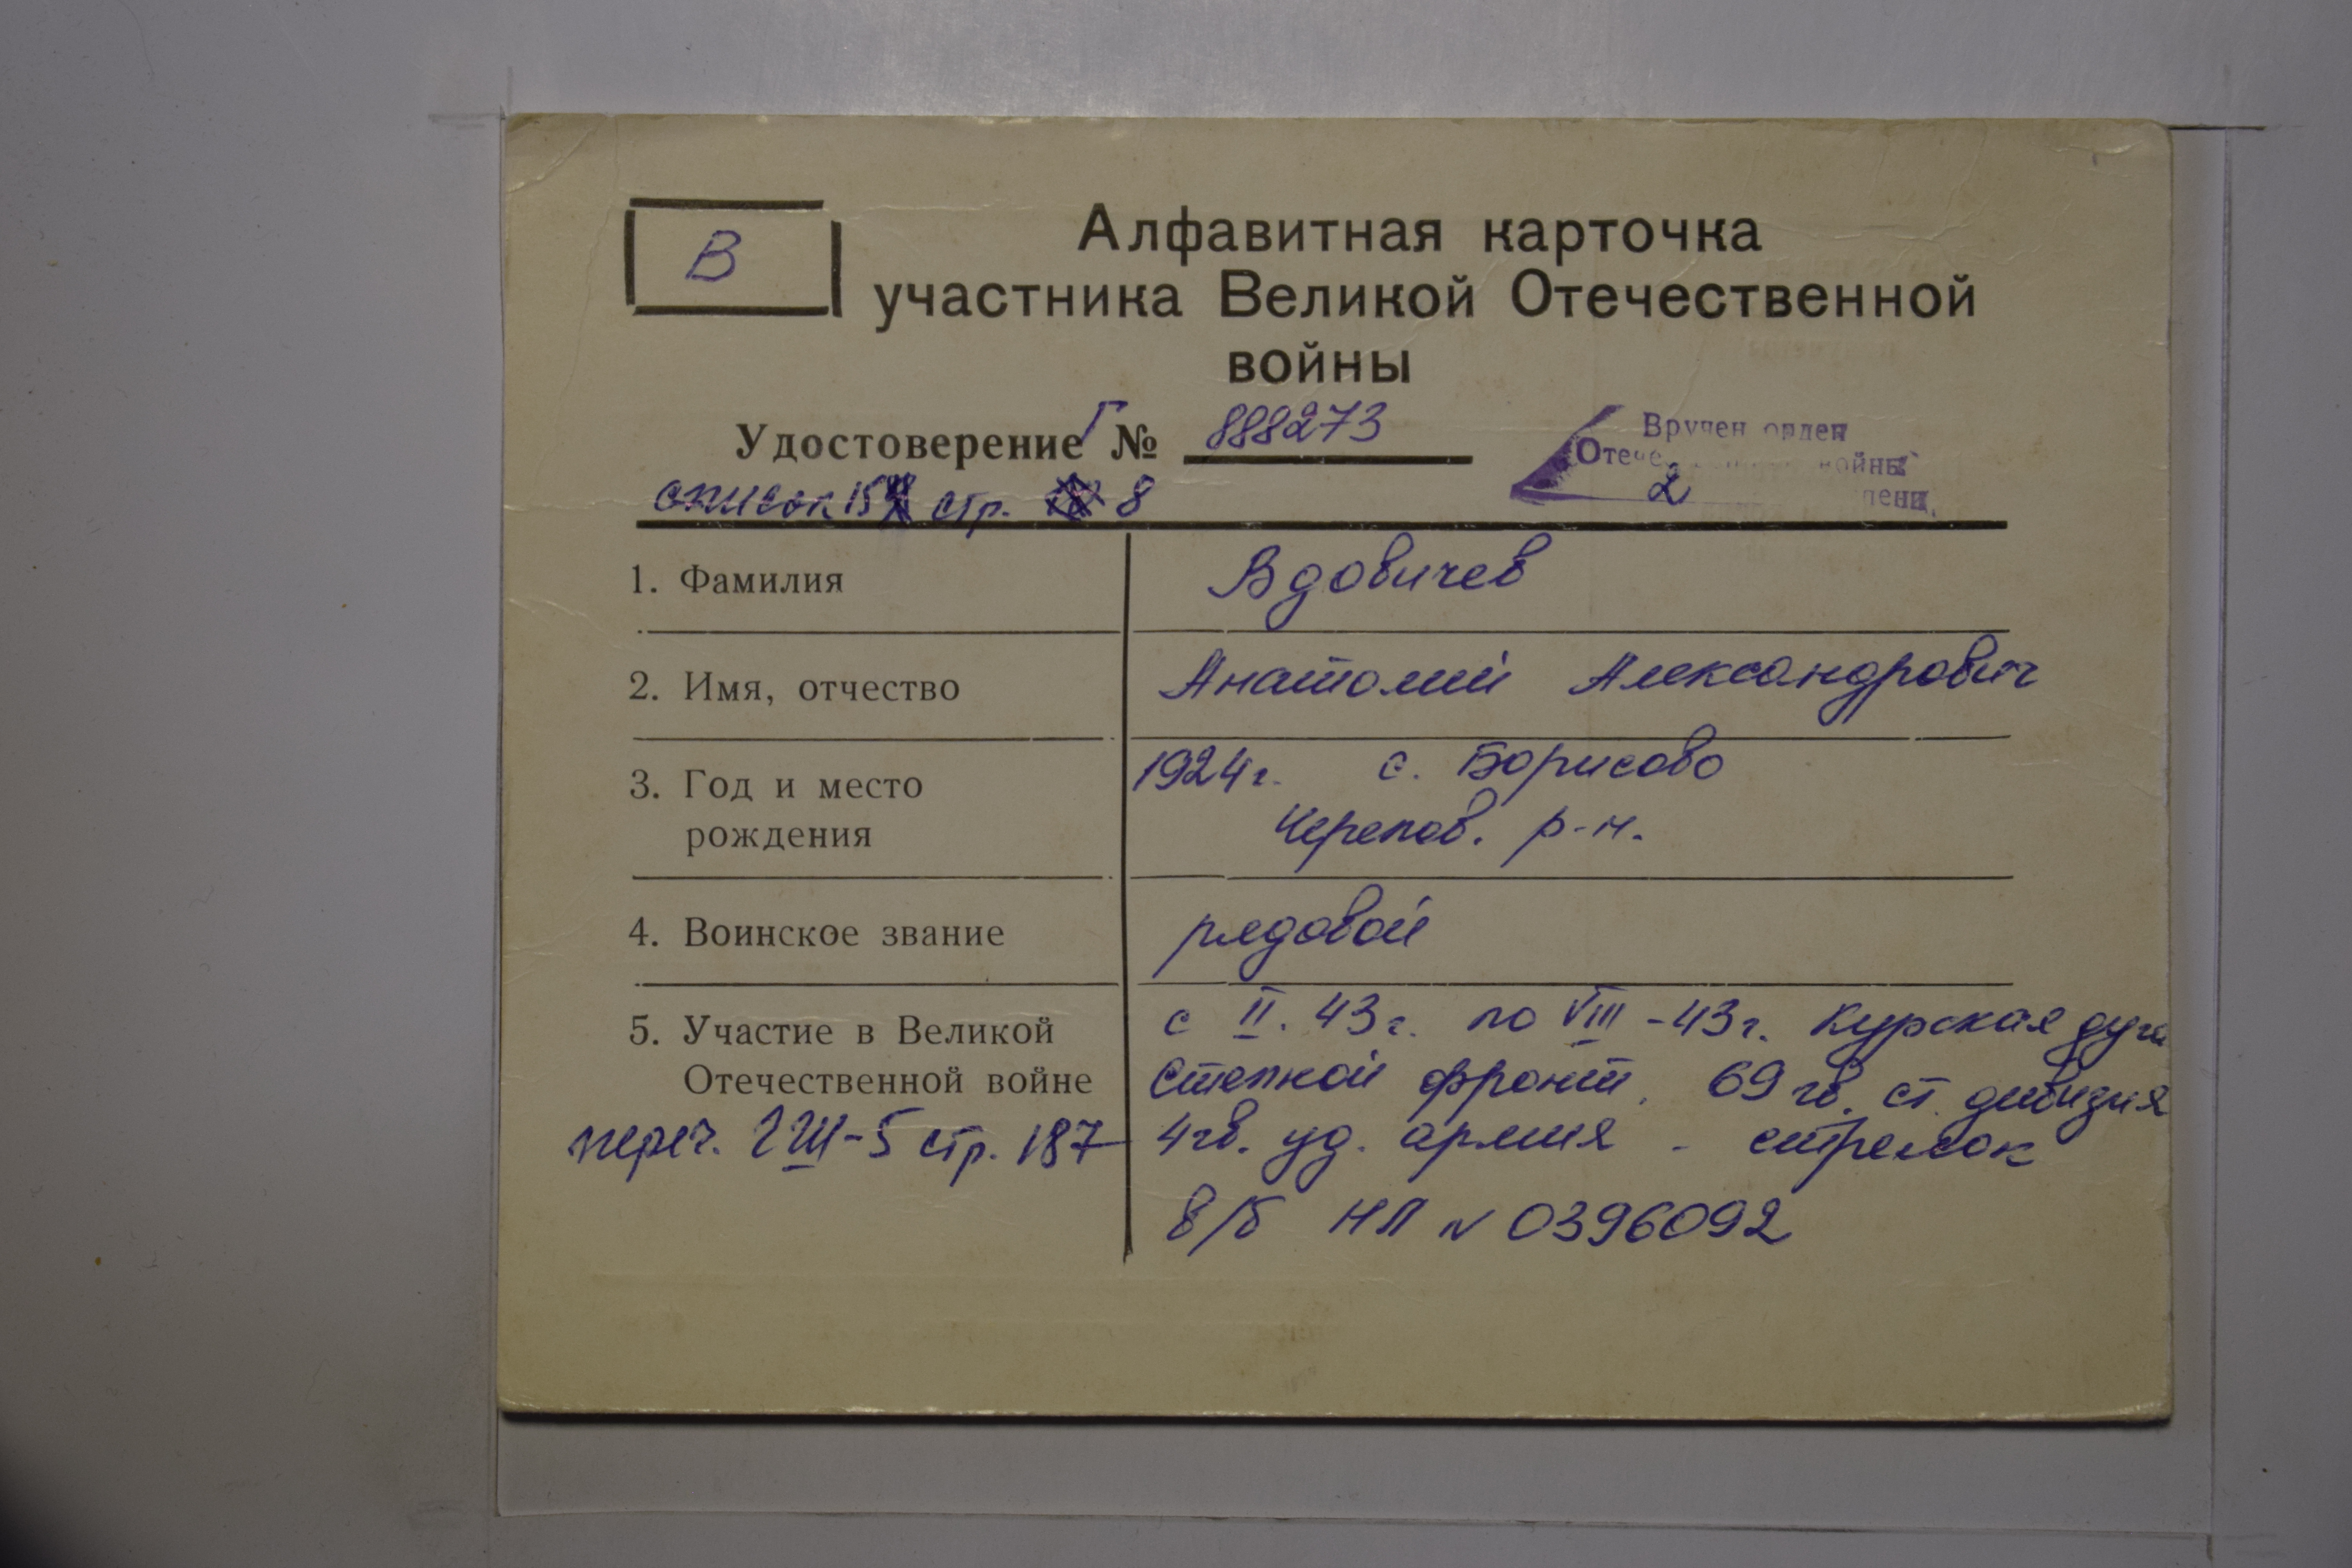 В
Алфавитная карточка
участника Великой Отечественной
войны
Удостоверение Г № 888273
Вручен орден
Отече войны
2 пени.
список 15 стр. 8
1. Фамилия Вдовичев
2. Имя, отчество Анатолий Александрович
3. Год и место 1924г. с. Борисово
рождения Черепов. р-н.
4. Воинское звание рядовой
5. Участие в Великой с II. 43г. по VIII-43г. Курская дуга
Отечественной войне Степной фронт, 69 гв. ст. дивизия
переч. стр. 187 4гв. уд. армия - стрелок
в/б НП № 0396092